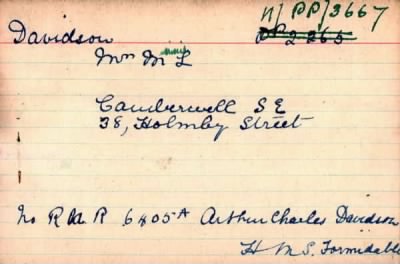 N/PP/3667
Davidson PP 2265
Mrs M L
Camberwell S E
38, Holmby Street
No R N R 6405A Arthur Charles Davidson
H M S. Formidable